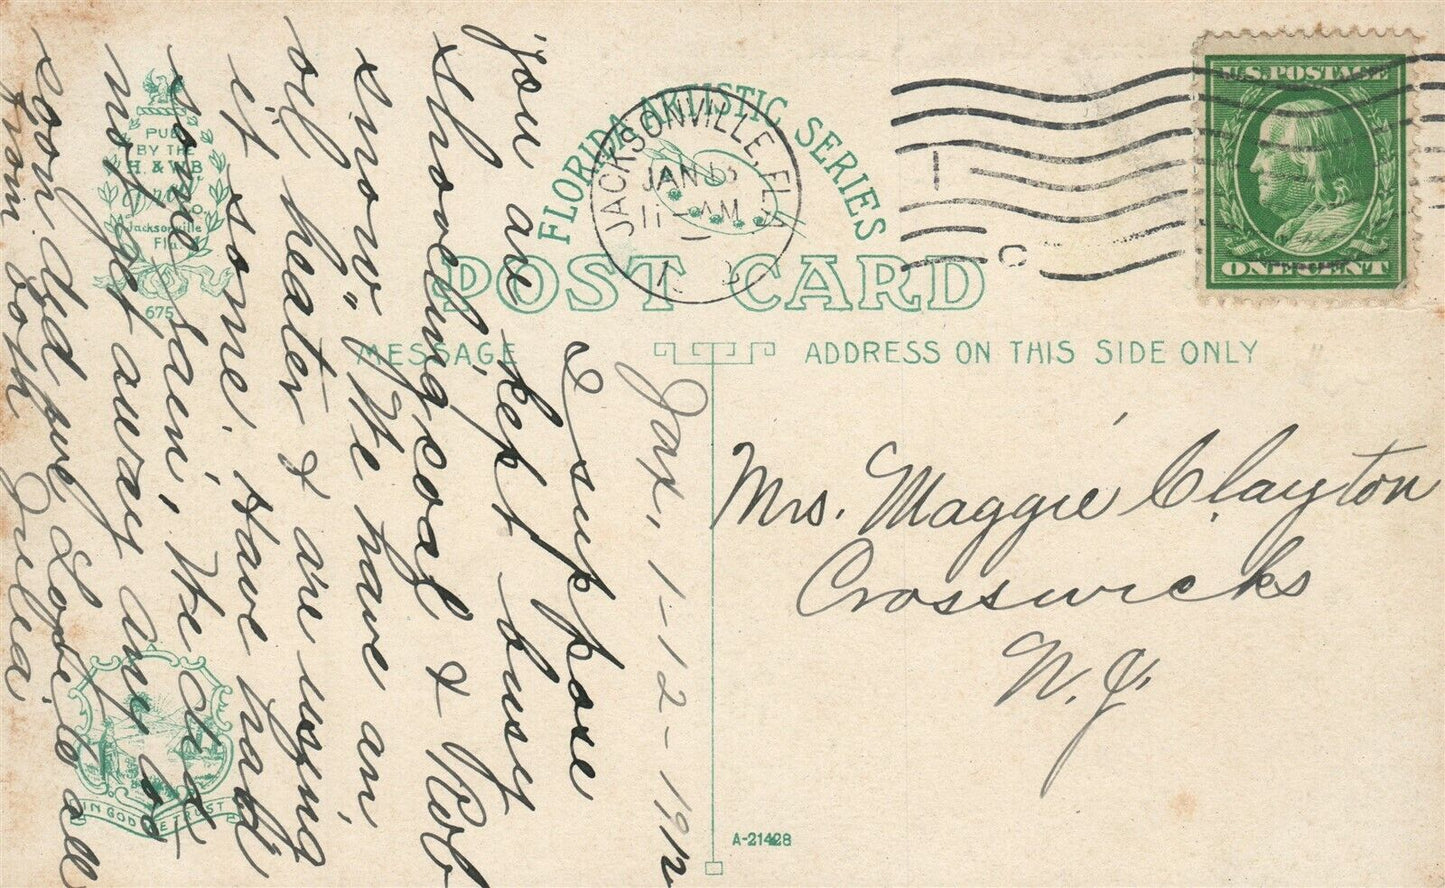 FLORIDA ARTISTIC SERIES
POST CARD
MESSAGE
ADDRESS ON THIS SIDE ONLY
U.S. POSTAGE
ONE CENT
JACKSONVILLE, FLA
JAN 
11-AM
1
C
PUB
BY THE
H. & W.B.
Drew
Co
Jacksonville
Fla.
675
IN GOD WE TRUST
A-21428
Jax, 1-12-1912
I suppose
you are kept busy
shoveling coal & Rob
snow". We have an
oil heater & are using
it some. Have had
some rain, We
not got away any
Love to all
from both Julia
Mrs. Maggie Clayton
Crosswicks
N.J.